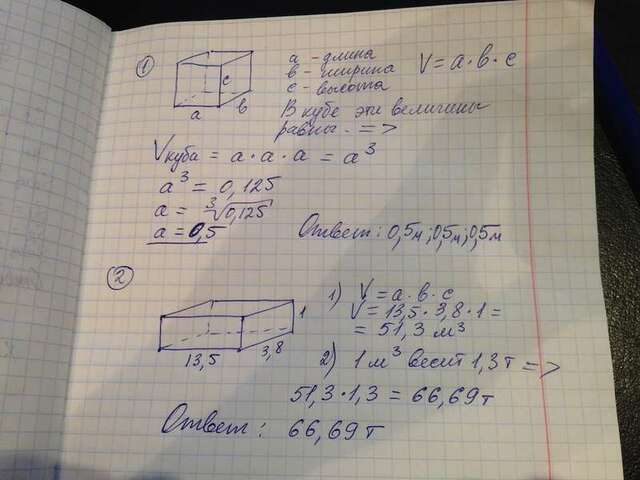 1
a - длина
в - ширина
c - высота
V = a · в · c
c
в
a
В кубе эти величины
равны. =>
Vкуба = a · a · a = a³
a³ = 0,125
a = ∛0,125
a = 0,5
Ответ: 0,5м; 0,5м; 0,5м
2
1
3,8
13,5
1) V = a · в · c
V = 13,5 · 3,8 · 1 =
= 51,3 м³
2) 1 м³ весит 1,3 т =>
51,3 · 1,3 = 66,69 т
Ответ: 66,69 т